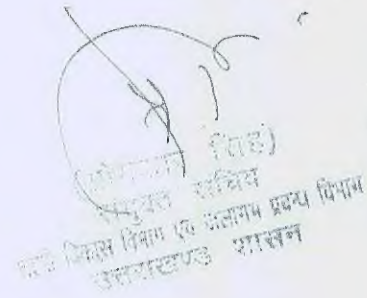 सिंह)
संयुक्त सचिव
विकास विभाग एवं जलागम प्रबन्ध विभाग
उत्तराखण्ड शासन